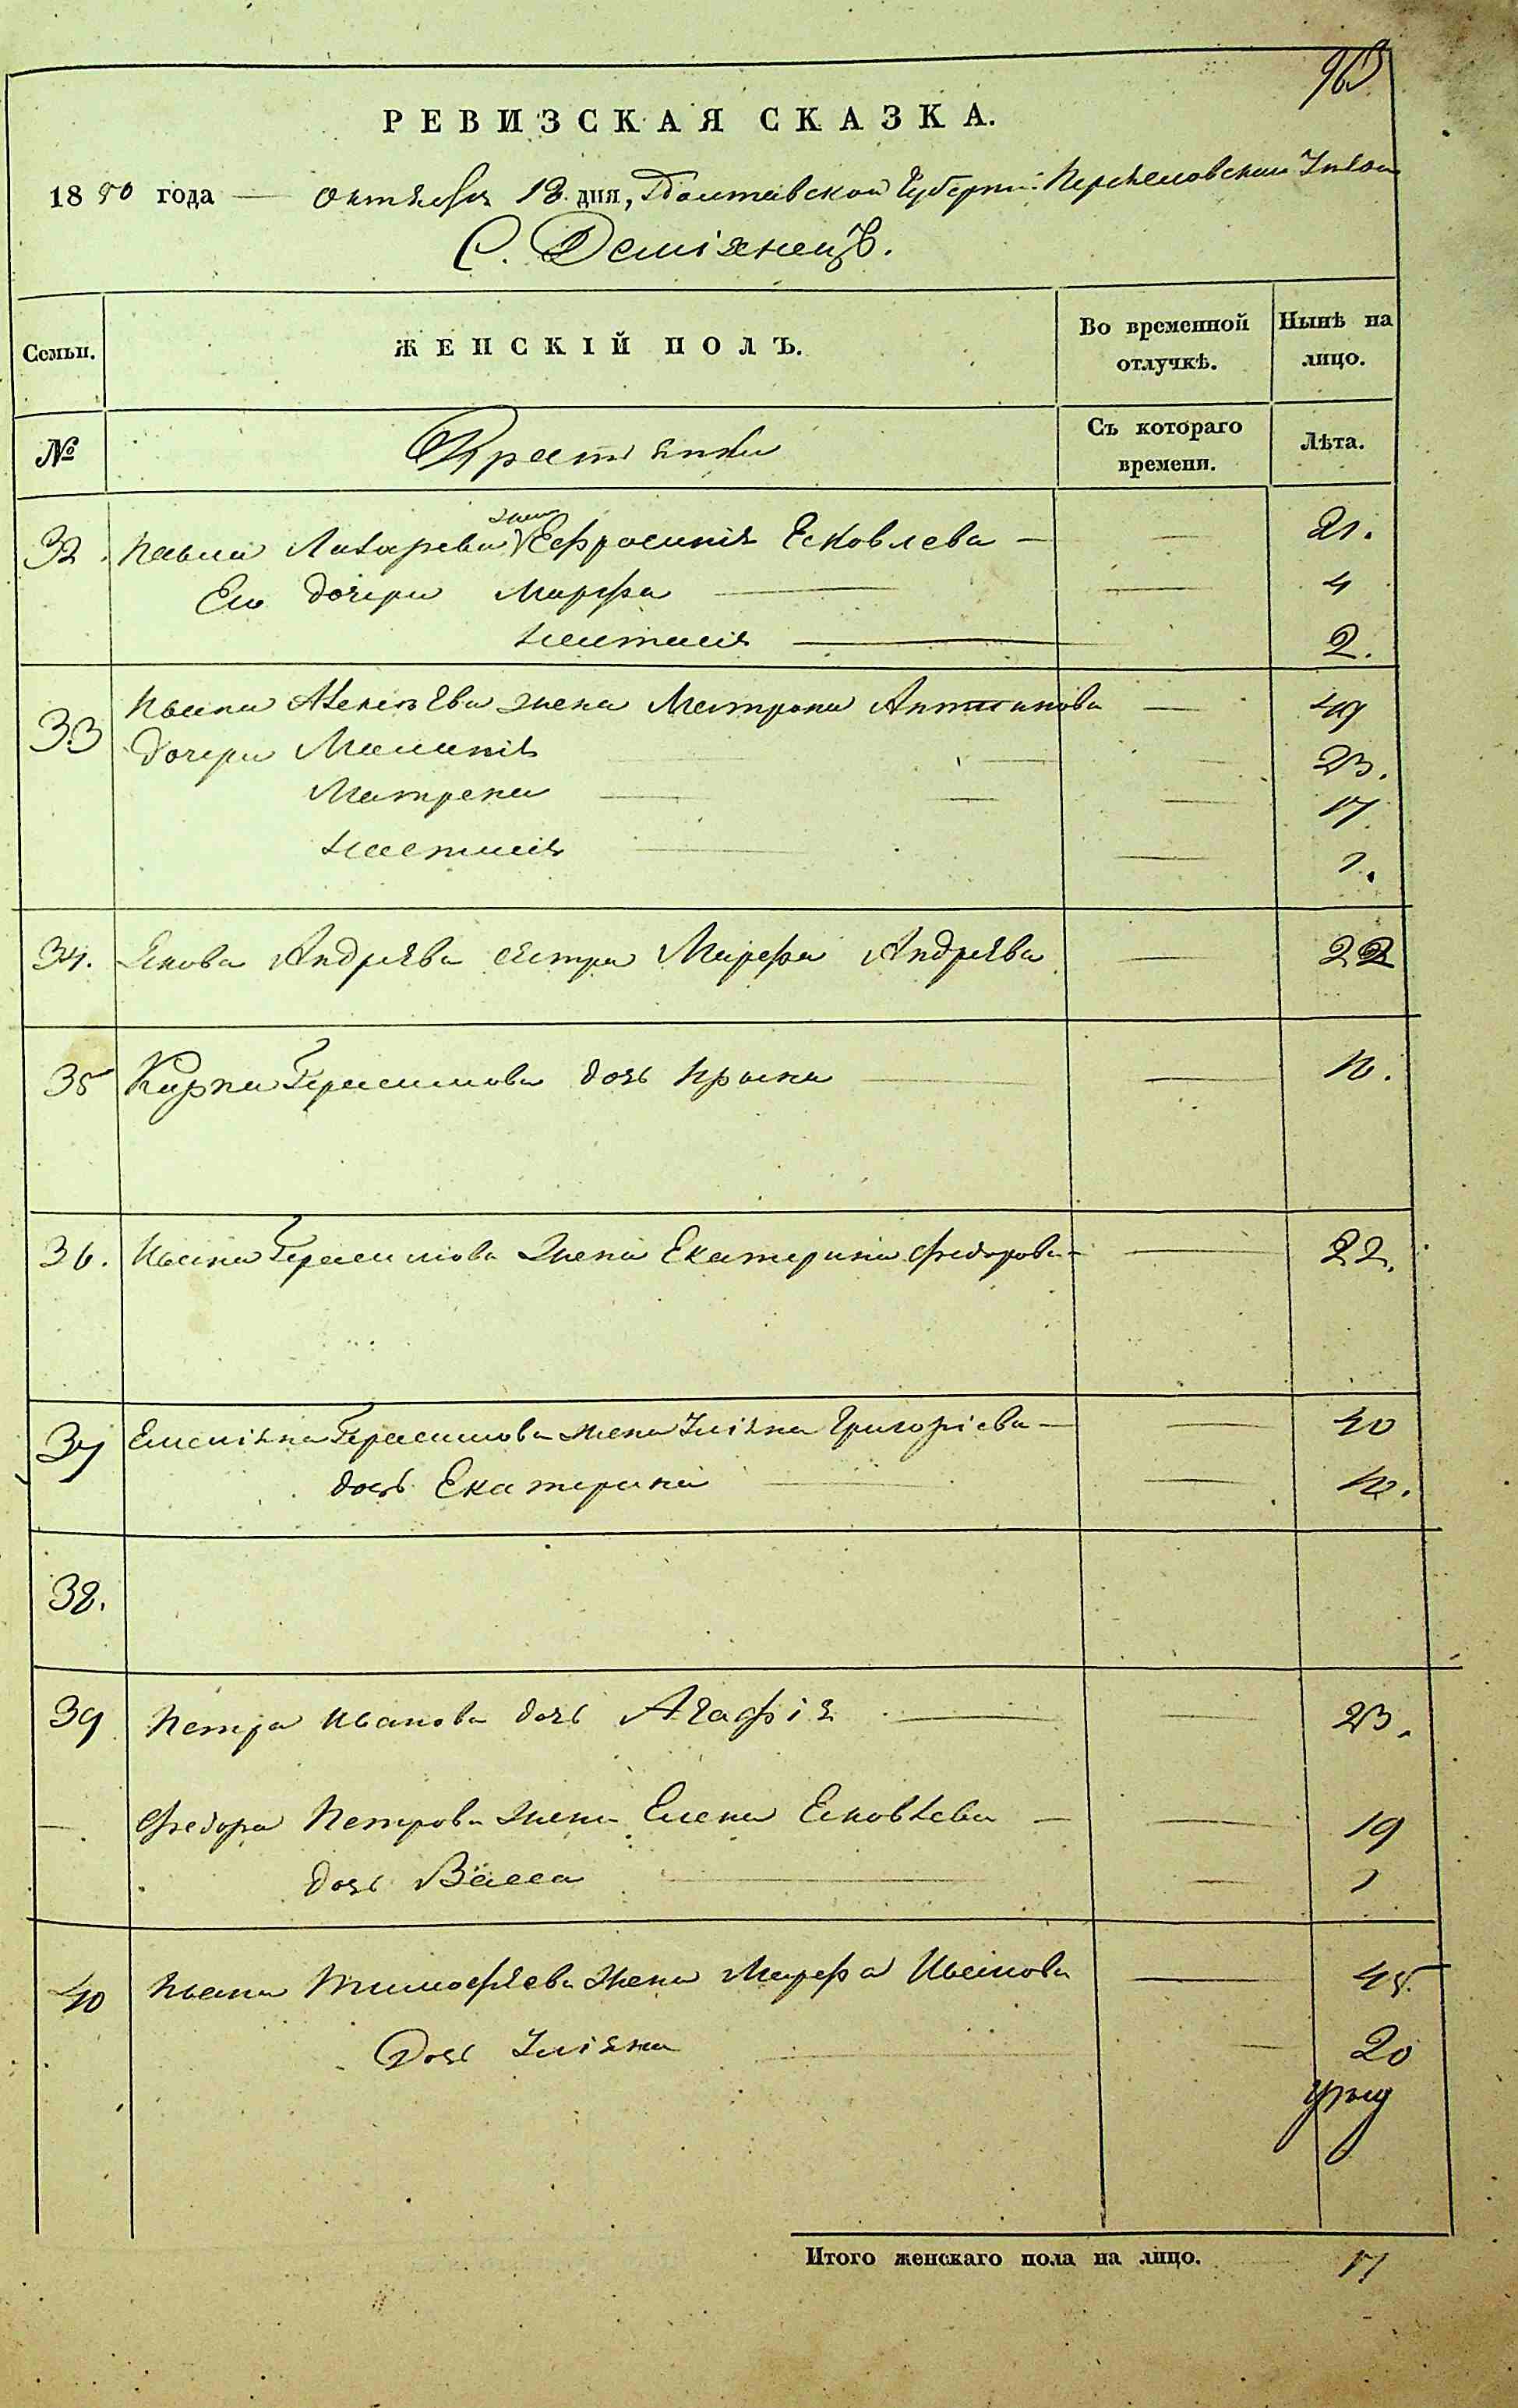 963
РЕВИЗСКАЯ СКАЗКА.
1850 года — октября 13 дня, Полтавской Губернии Переяславского Уезда
С. Деміянецъ.
Семьи. ЖЕНСКІЙ ПОЛЪ. Во временной отлучкѣ. Нынѣ на лицо.
№ Крестьянки Съ котораго времени. Лѣта.
32. Лазарева жена Ефросинія Яковлева — — 21.
Его дочери Марфа — — 4
Настасія — 2.
33 Ивана жена Матрона Антонова — 49
дочери Меланія — — 23.
Матрена — — — 17.
Настасія — — 1.
34. Якова Андрѣева сестра Марфа Андрѣева — 22
35 Карпа Герасимова дочь Ирина — — 10.
36. Ивана Герасимова жена Екатерина Федорова — — 22.
37 Емеліяна Герасимова жена Уліяна Григоріева — — 40
дочь Екатерина — — 12.
38.
39 Петра Иванова дочь Агафія — — 23.
— Федора Петрова жена Елена — — 19
дочь Васса — — 1
40 Ивана Тимофѣева жена Марфа Иванова — 45.
Дочь Уліяна — — 20
Итого женскаго пола на лицо. 17